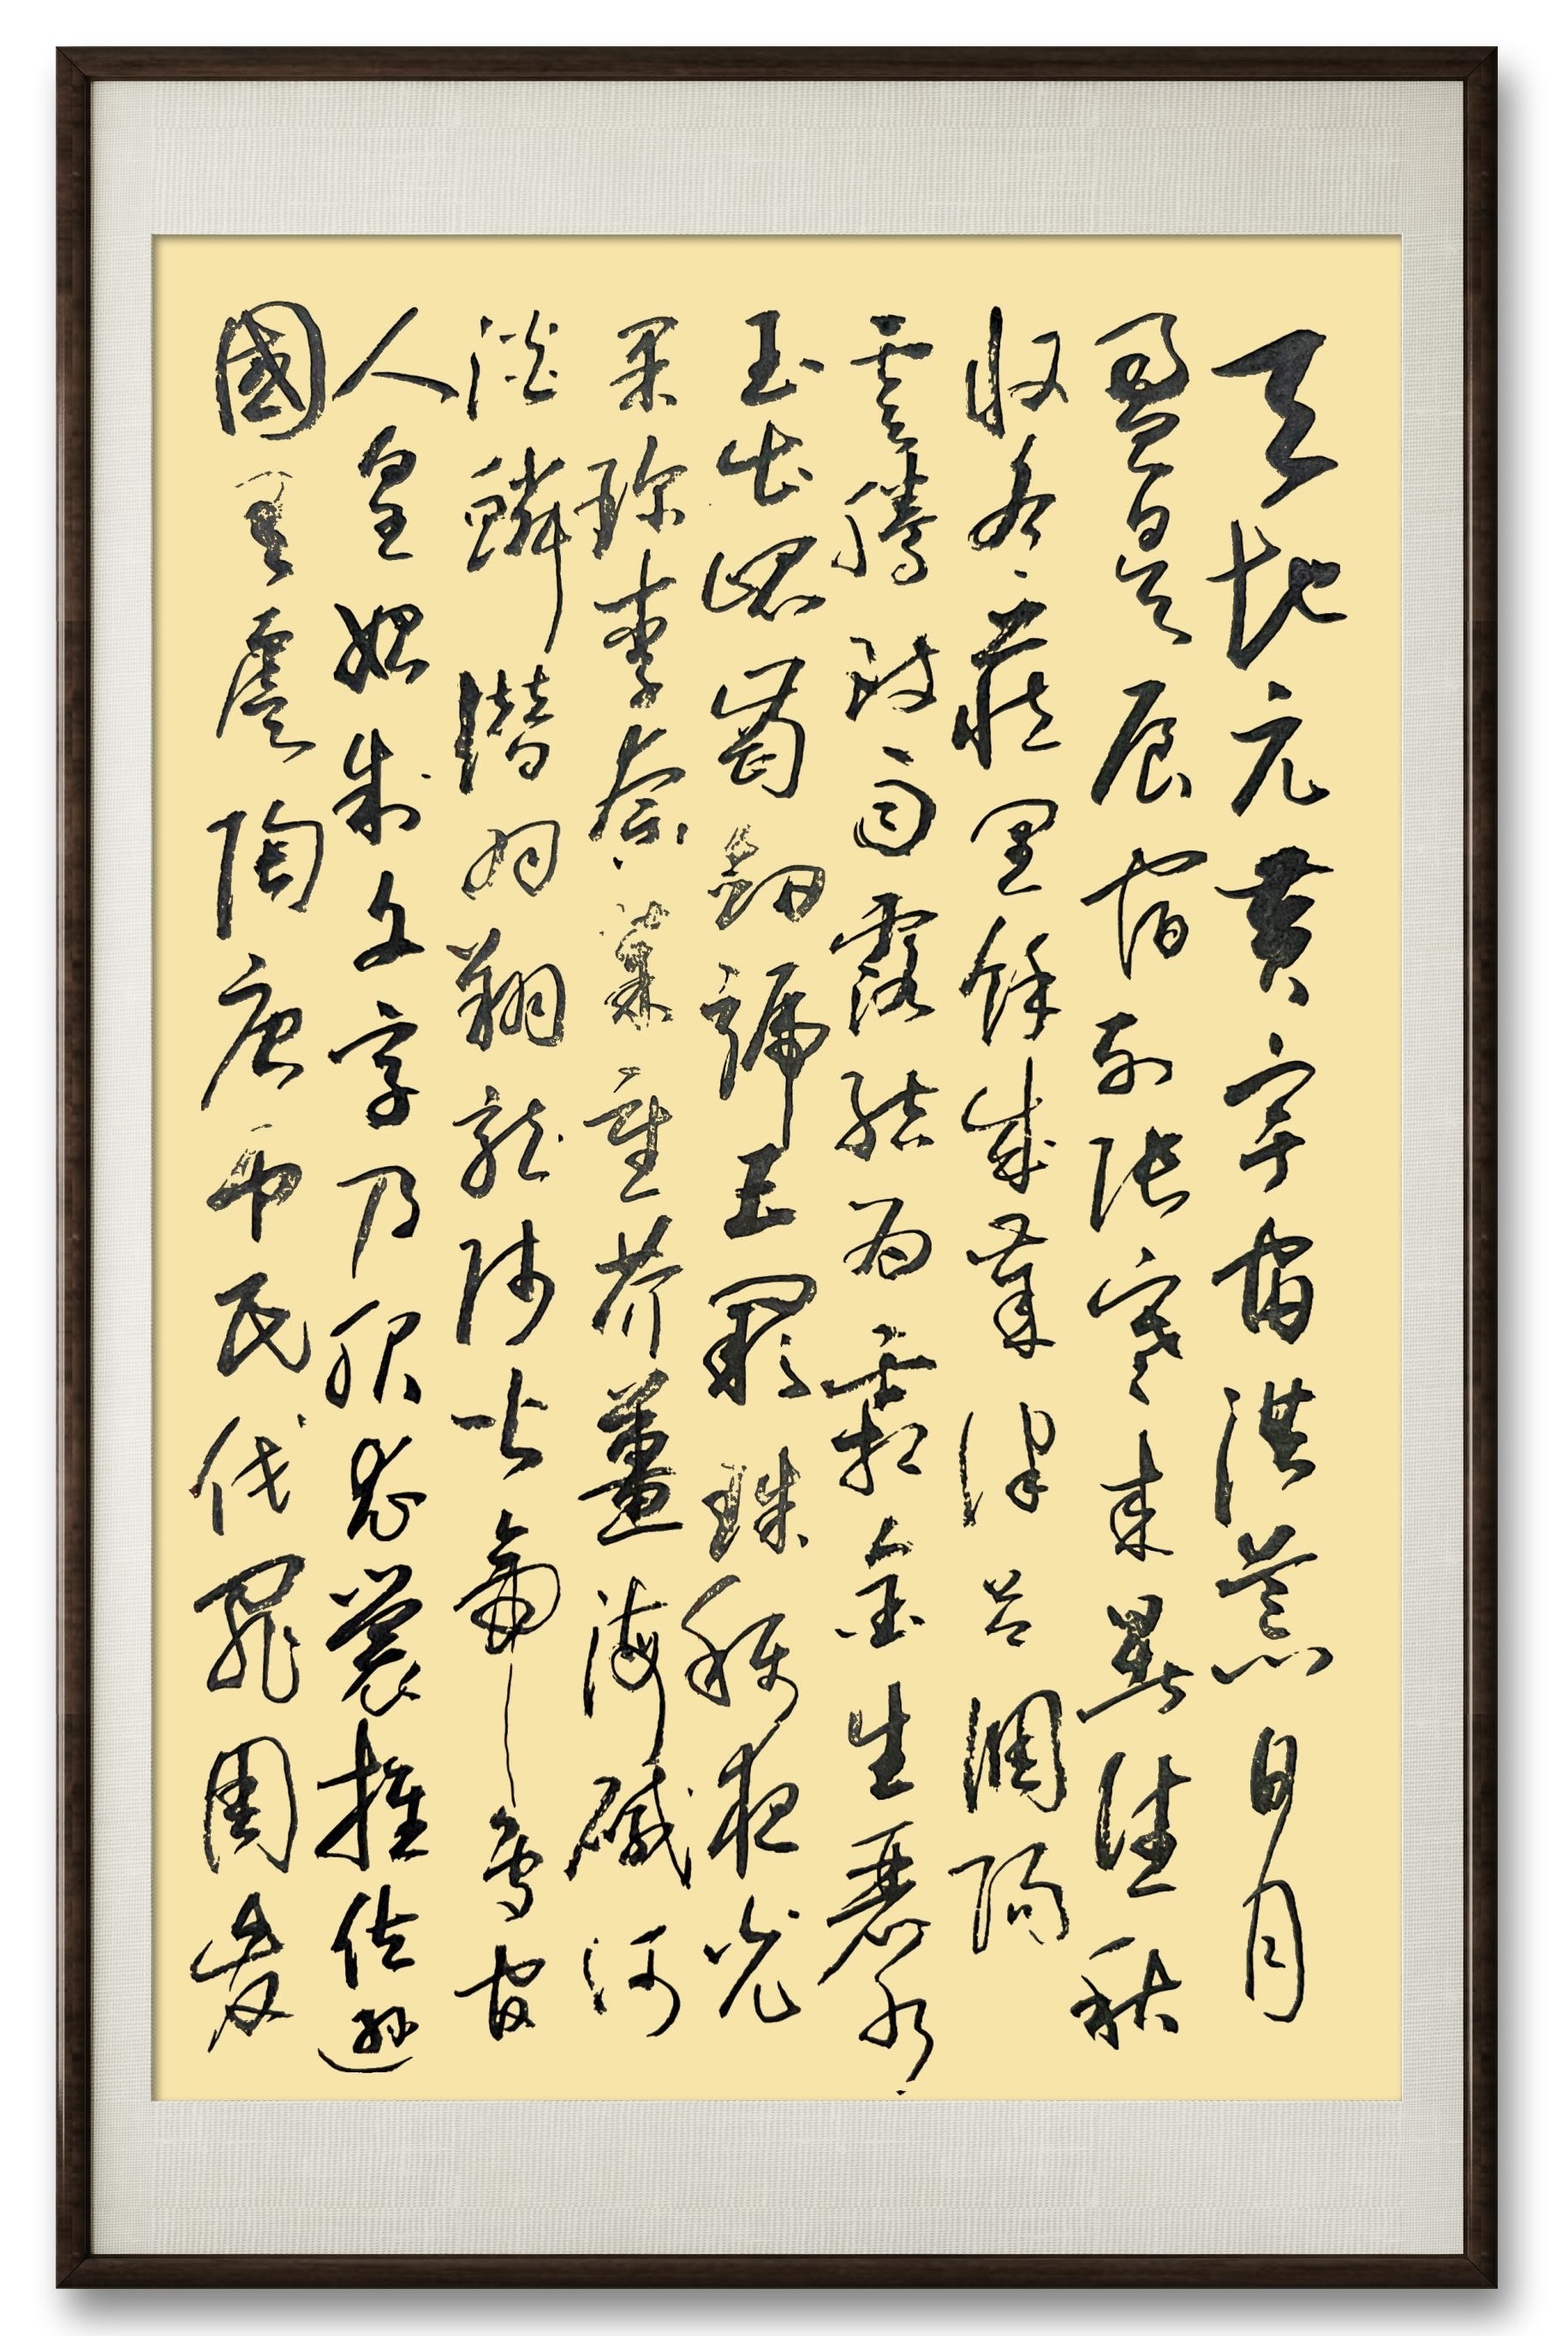 天地元黄宇宙洪荒日月
盈昃辰宿列張寒來暑往秋
收冬藏閏餘成歲律呂調陽
雲騰致雨露結為霜金生麗水
玉出崐崗劍號巨闕珠稱夜光
果珍李柰菜重芥薑海鹹河
淡鱗潛羽翔龍師火帝鳥官
人皇始制文字乃服衣裳推位遜
國有虞陶唐弔民伐罪周發